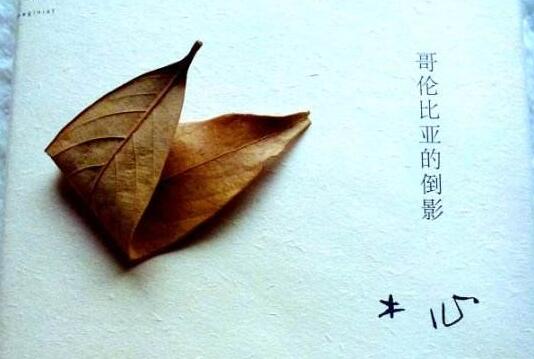 哥伦比亚的倒影
木心